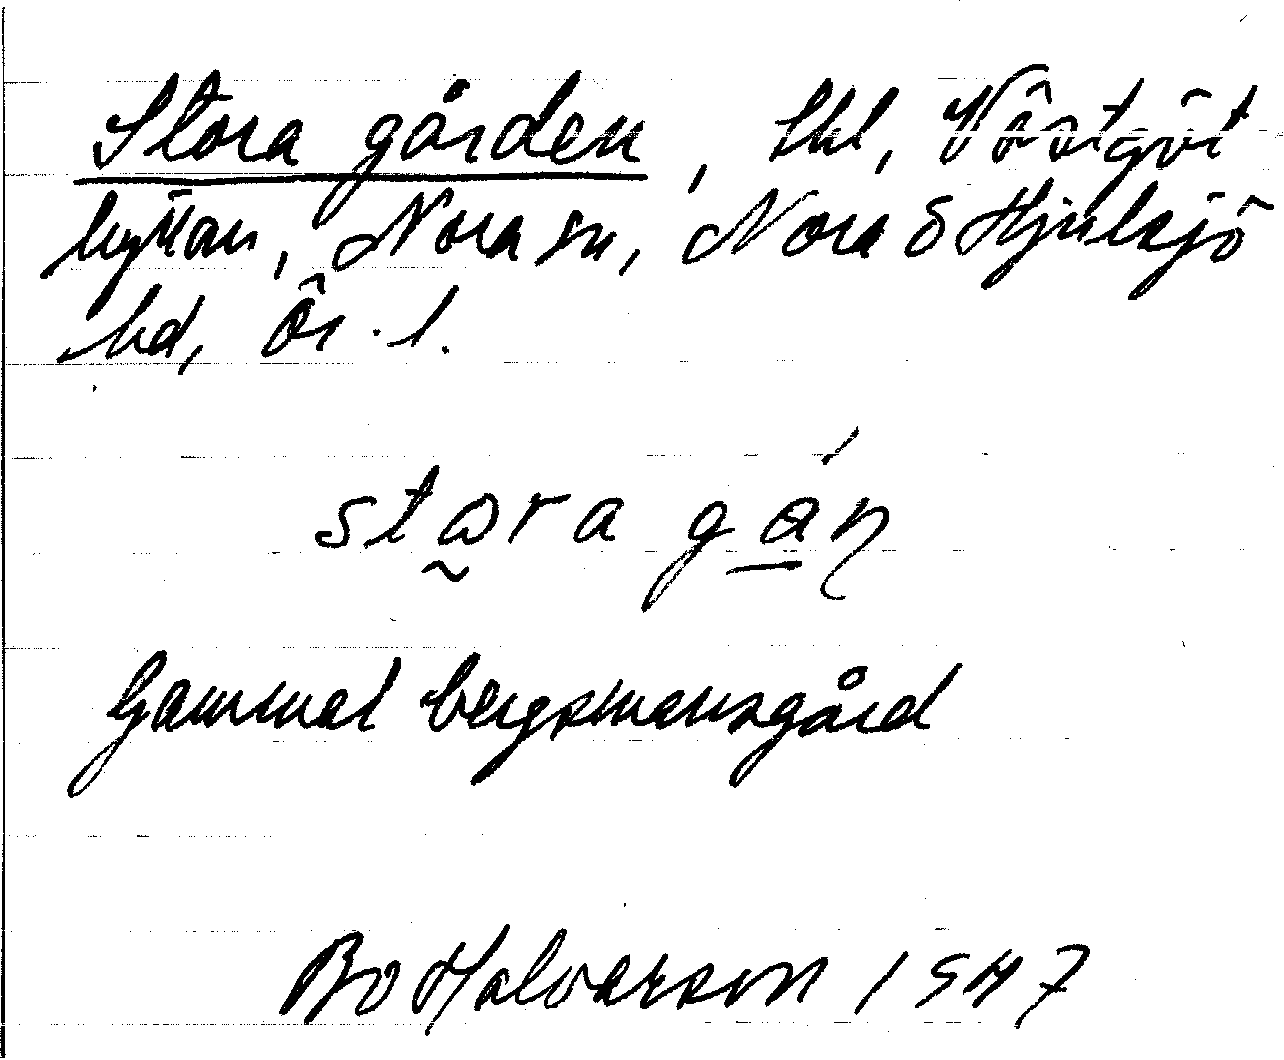 Stora gården, Skl, Västgöt
hyttan, Nora sn, Nora & Hjulsjö
hd, Ör. l.
stɷra gán
Gammal bergsmansgård
Bo Halvarson 1947